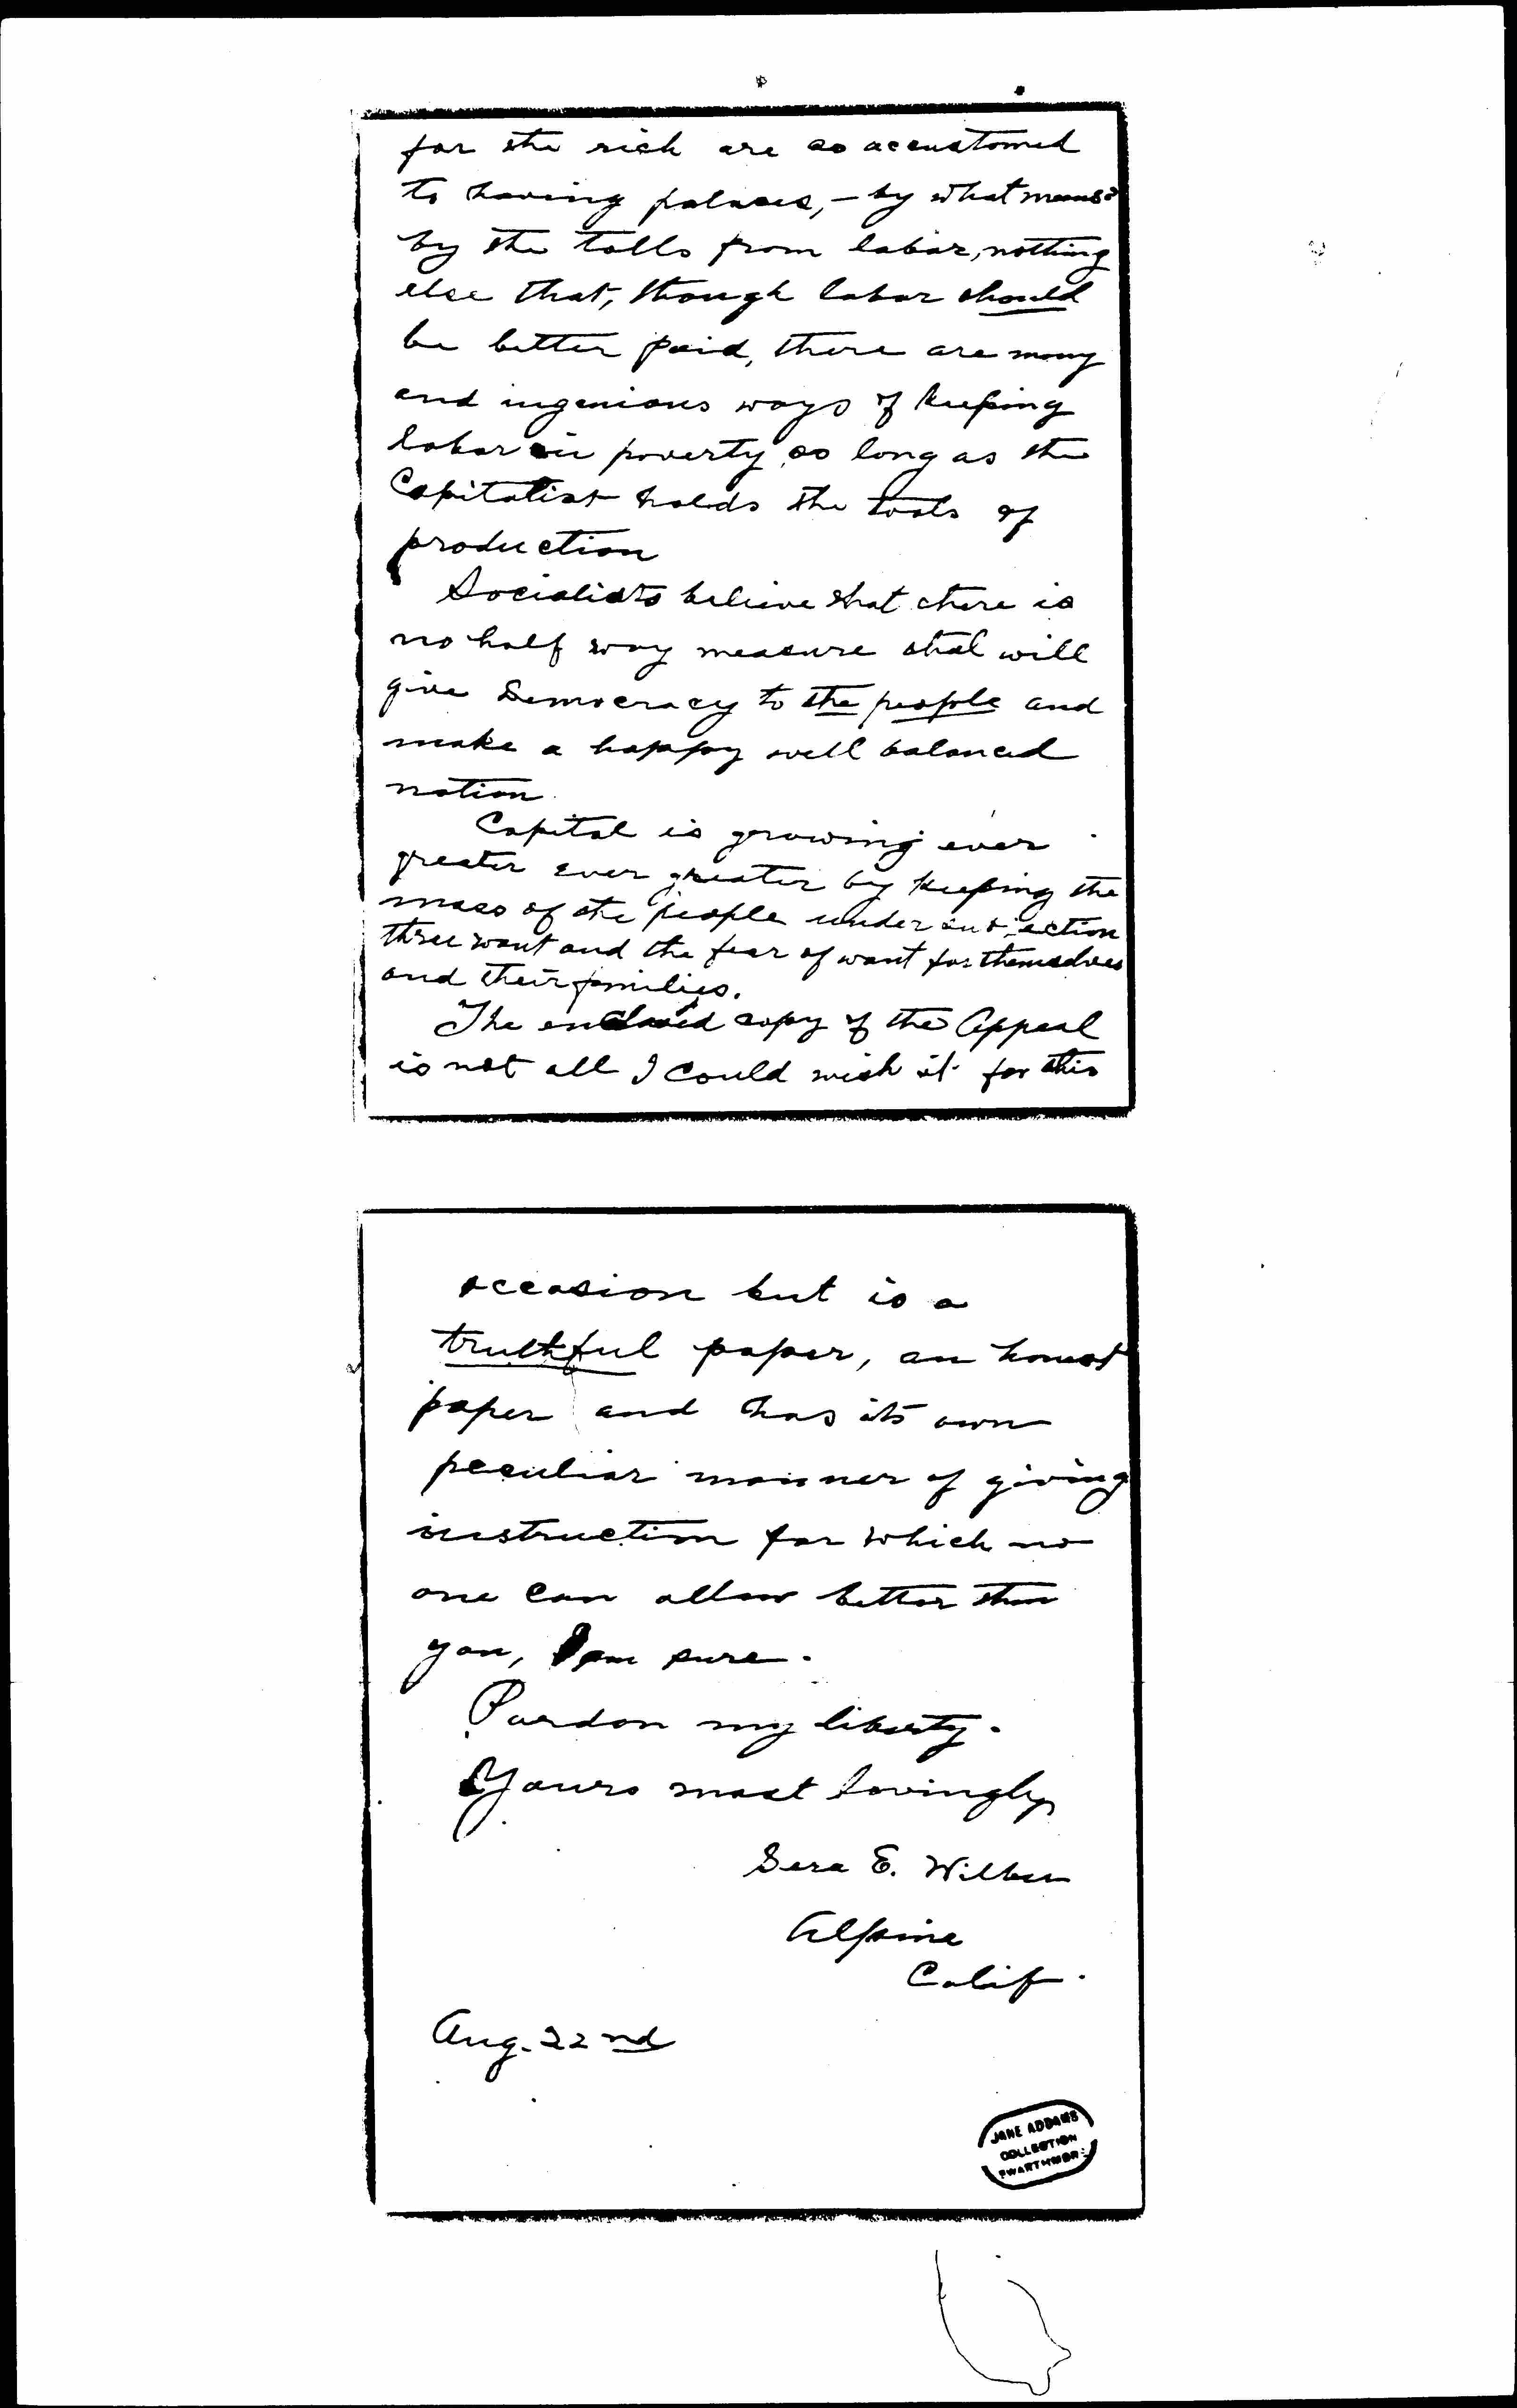 for the rich are so accustomed
to having palaces, - by what means?
by the tolls from labor, nothing
else that, though labor should
be better paid, there are many
and ingenious ways of keeping
labor in poverty so long as the
Capitalist holds the tools of
production
Socialists believe that there is
no half way measure that will
give Democracy to the people and
make a happy well balanced
nation.
Capital is growing ever
greater ever greater by keeping the
mass of the people under subjection
thru want and the fear of want for themselves
and their families.
The enclosed copy of the Appeal
is not all I could wish it for this
occasion but is a
truthful paper, an honest
paper and has its own
peculiar manner of giving
instruction for which no
one can allow better than
you, I am sure.
Pardon my liberty.
Yours most lovingly
Sera E. Wilbur
Alpine
Calif.
Aug. 22nd
JANE ADDAMS
COLLECTION
SWARTHMORE